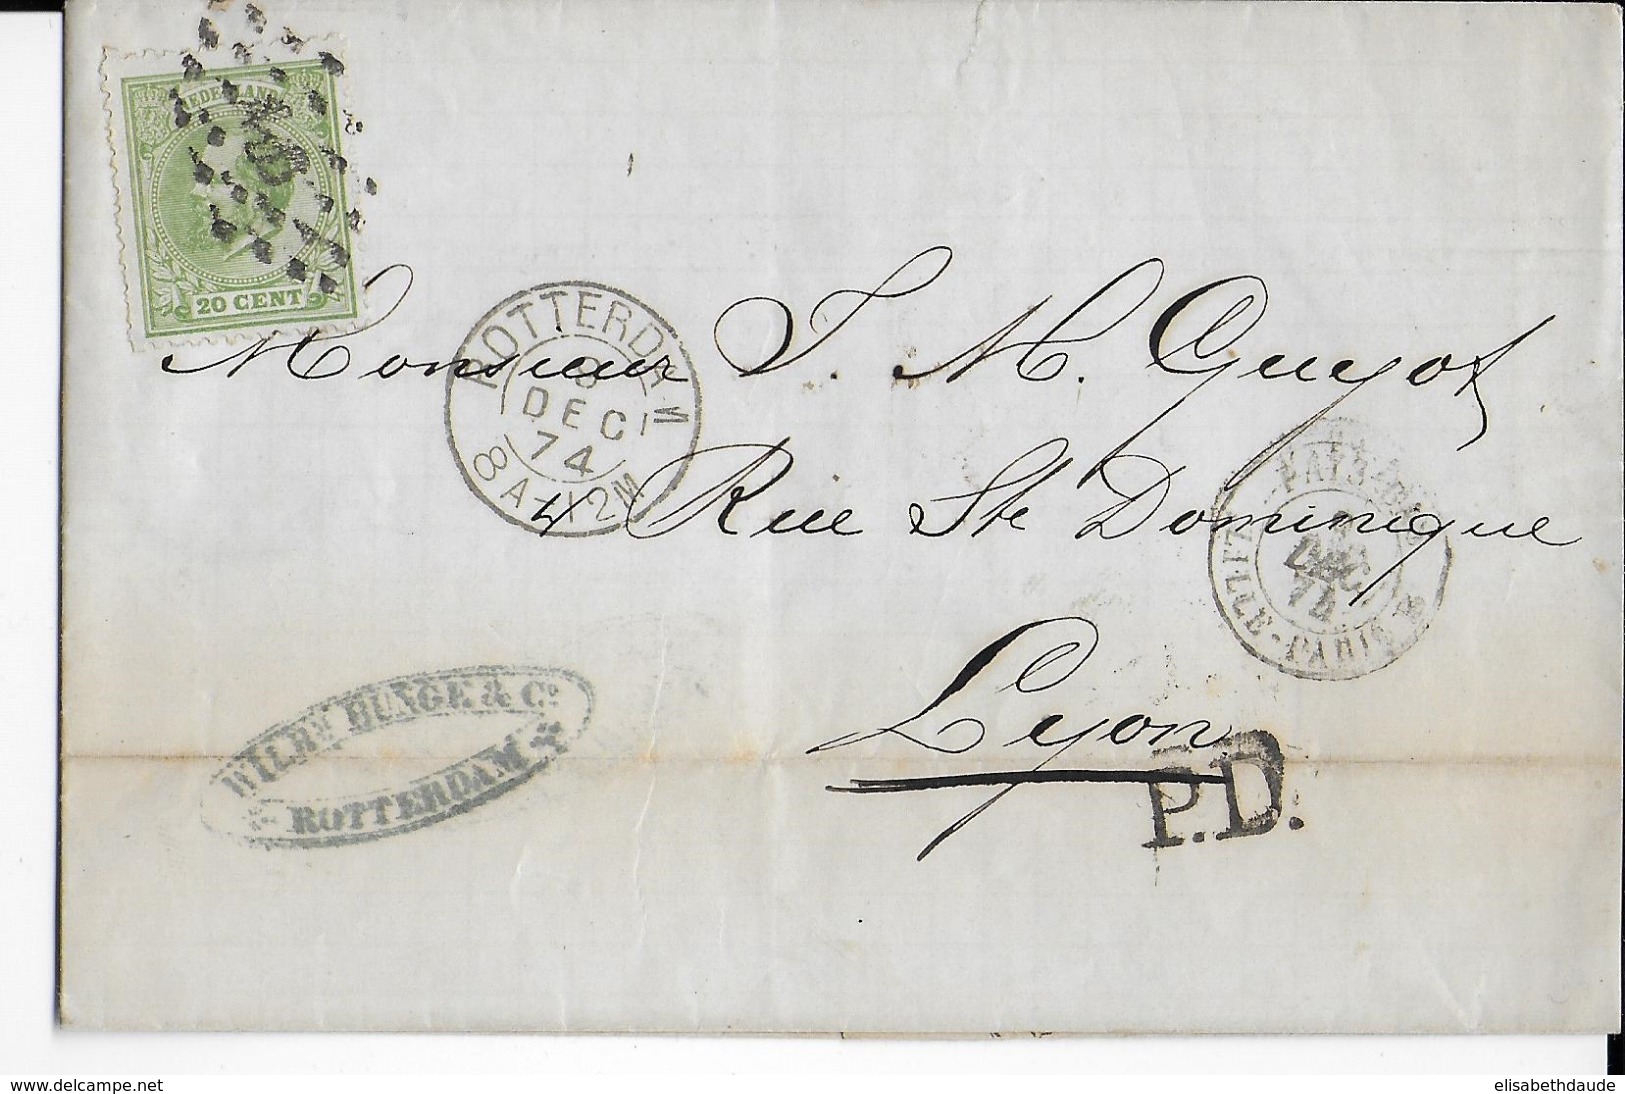 NEDERLAND
20 CENT
Monsieur J. M. Guyot
ROTTERDAM
8
DEC
74
8 A-12M
4 Rue Ste Dominique
PAYS-BAS
DEC
74
LILLE-PARIS
Lyon
P.D.
WILHM BUNGE & Co.
ROTTERDAM
www.delcampe.net
elisabethdaude